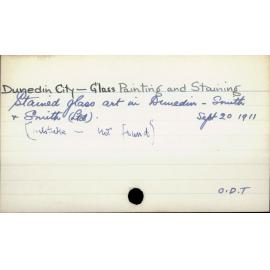 Dunedin City - Glass Painting and Staining
Stained glass art in Dunedin - Smith
& Smith (Ltd). Sept 20 1911
(mistake - not found)
O.D.T